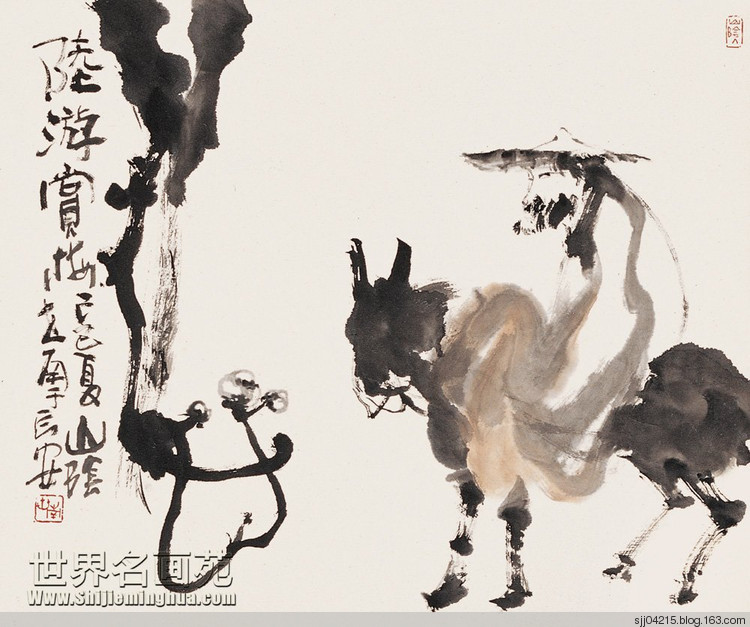 陸游賞梅
夏山陰
長安
山陰人
世界名画苑
www.shijieminghua.com
sjj04215.blog.163.com